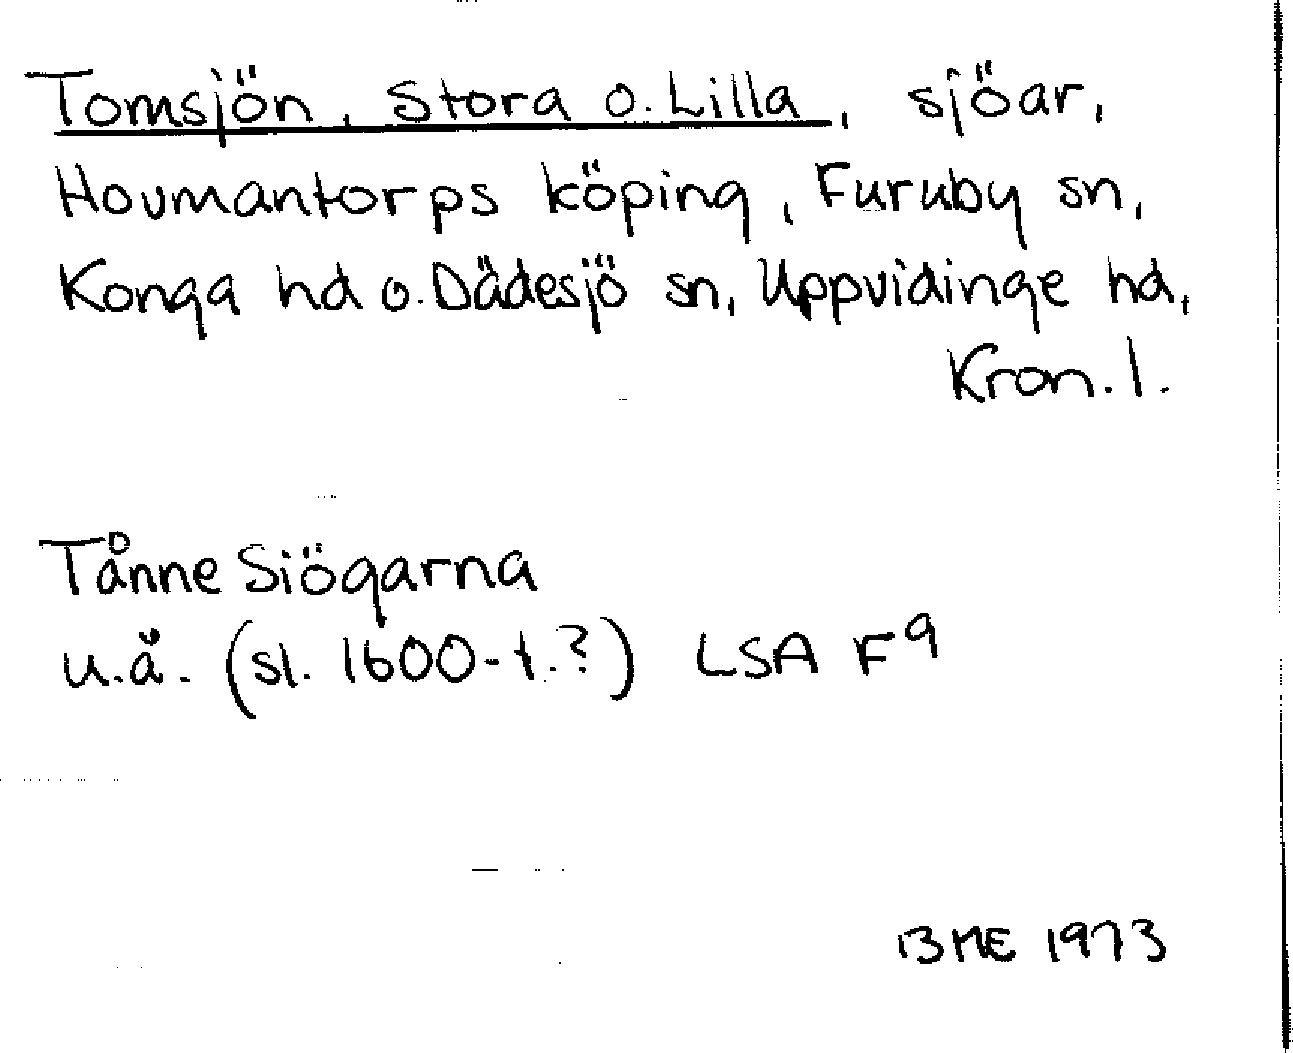 Tomsjön, Stora o. Lilla, sjöar,
Hovmantorps köping, Furuby sn,
Konga hd o. Dädesjö sn, Uppvidinge hd,
Kron. l.
Tånne Siögarna
u.å. (sl. 1600-t.?) LSA F9
BME 1973